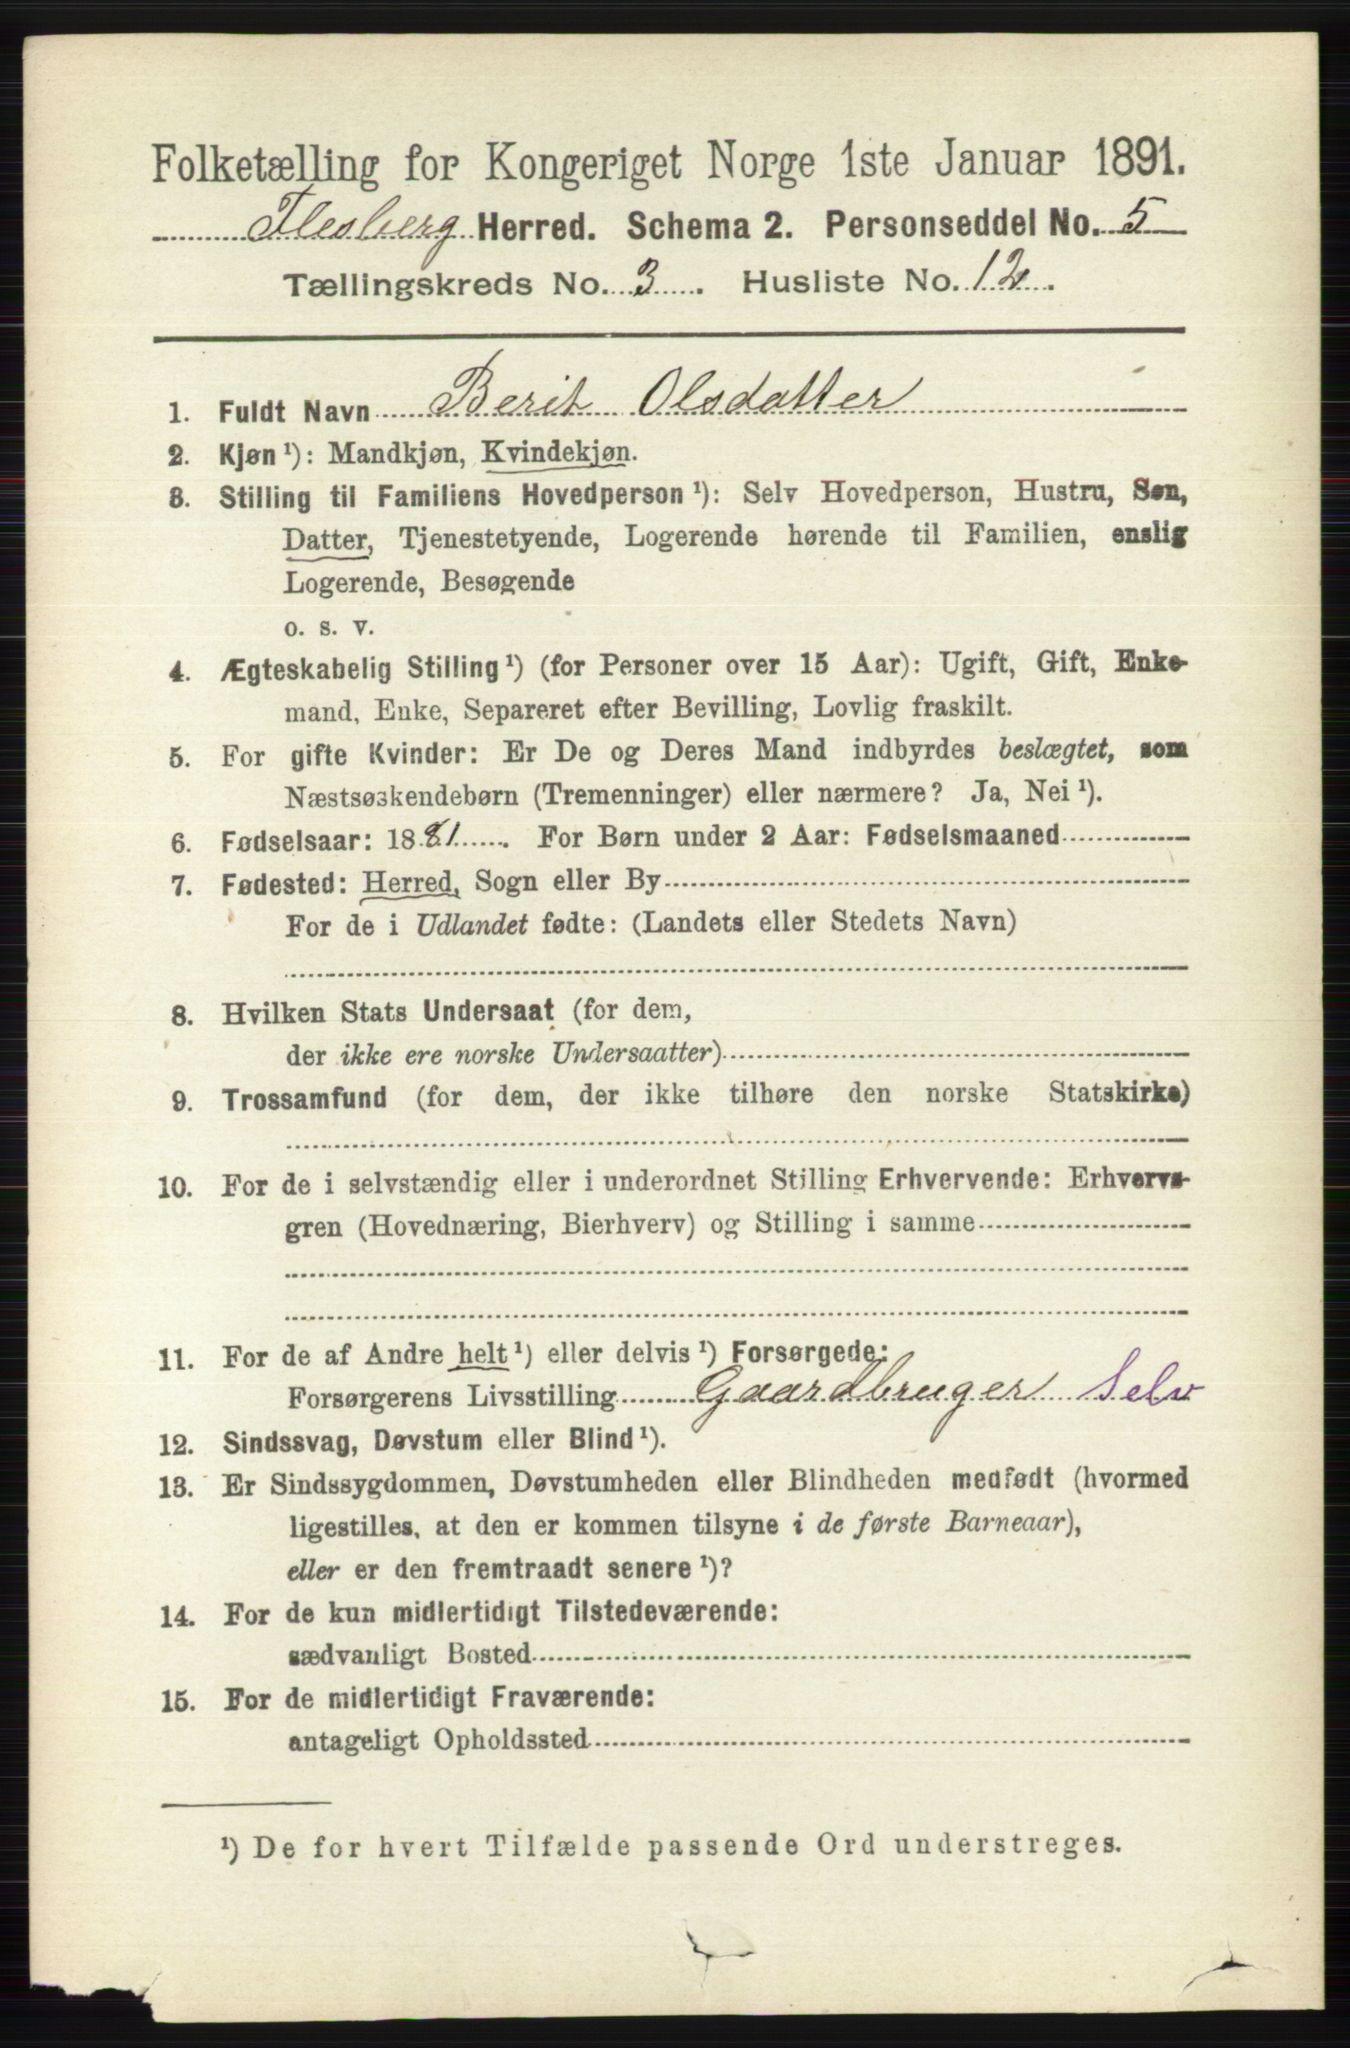 Folketælling for Kongeriget Norge 1ste Januar 1891.
Flesberg Herred. Schema 2. Personseddel No. 5
Tællingskreds No. 3. Husliste No. 12.
1. Fuldt Navn Berit Olsdatter
2. Kjøn ¹): Mandkjøn, Kvindekjøn.
3. Stilling til Familiens Hovedperson ¹): Selv Hovedperson, Hustru, Søn,
Datter, Tjenestetyende, Logerende hørende til Familien, enslig
Logerende, Besøgende
o. s. v.
4. Ægteskabelig Stilling ¹) (for Personer over 15 Aar): Ugift, Gift, Enke-
mand, Enke, Separeret efter Bevilling, Lovlig fraskilt.
5. For gifte Kvinder: Er De og Deres Mand indbyrdes beslægtet, som
Næstsøskendebørn (Tremenninger) eller nærmere? Ja, Nei ¹).
6. Fødselsaar: 1881. For Børn under 2 Aar: Fødselsmaaned
7. Fødested: Herred, Sogn eller By
For de i Udlandet fødte: (Landets eller Stedets Navn)
8. Hvilken Stats Undersaat (for dem,
der ikke ere norske Undersaatter)
9. Trossamfund (for dem, der ikke tilhøre den norske Statskirke)
10. For de i selvstændig eller i underordnet Stilling Erhvervende: Erhvervs-
gren (Hovednæring, Bierhverv) og Stilling i samme
11. For de af Andre helt ¹) eller delvis ¹) Forsørgede:
Forsørgerens Livsstilling Gaardbruger Selv
12. Sindssvag, Døvstum eller Blind ¹).
13. Er Sindssygdommen, Døvstumheden eller Blindheden medfødt (hvormed
ligestilles, at den er kommen tilsyne i de første Barneaar),
eller er den fremtraadt senere ¹)?
14. For de kun midlertidigt Tilstedeværende:
sædvanligt Bosted
15. For de midlertidigt Fraværende:
antageligt Opholdssted
¹) De for hvert Tilfælde passende Ord understreges.